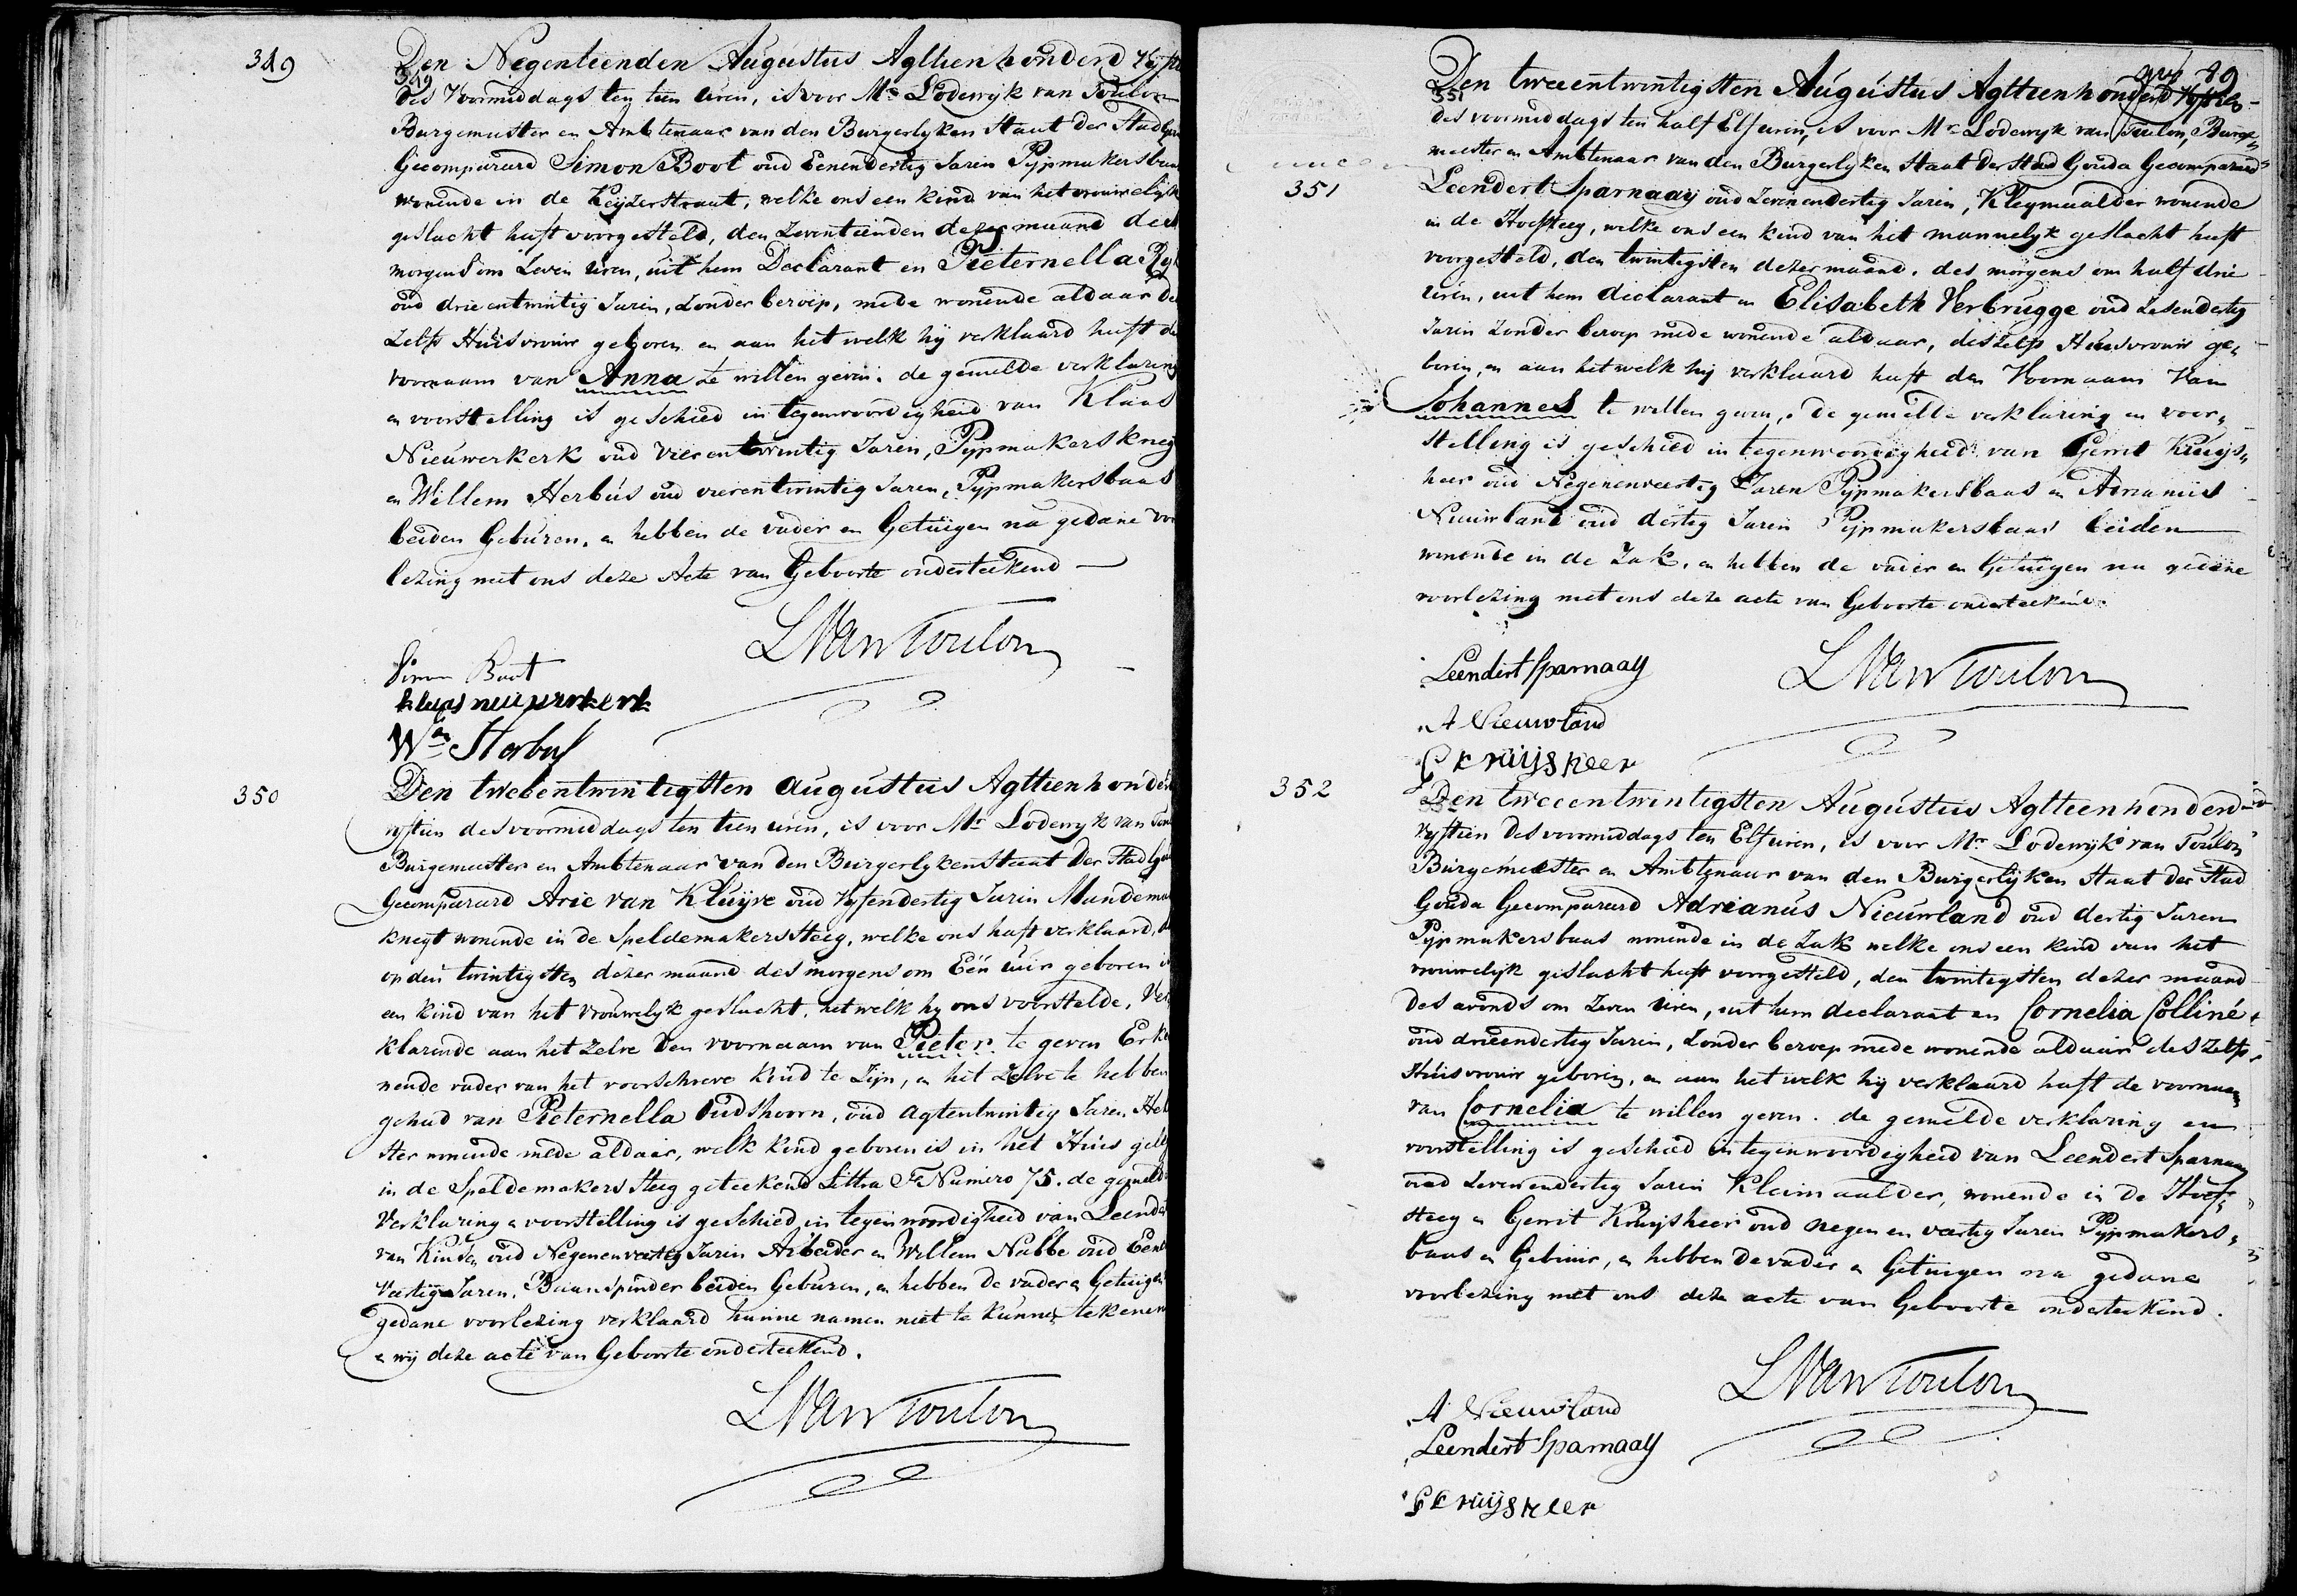 349
Den Negentienden Augustus Agttien honderd Vijftien
349
des Voormiddags ten tien uren, is voor Mr. Lodewijk van Toulon
Burgemeester en Ambtenaar van den Burgerlyken Staat der Stad
Gecompareerd Simon Boot oud Eenendertig Jaren Pijpmakersbaas
wonende in de Keyzerstraat, welke ons een kind van het vrouwelijk
geslacht heeft voorgesteld, den Zeventienden dezer maand des
morgens om Zeven uren, uit hem Declarant en Pieternella
oud drie entwintig Jaren, Zonder beroep, mede wonende aldaar des
Zelfs Huisvrouw geboren en aan het welk hij verklaard heeft de
voornaam van Anna te willen geven. de gemelde verklaring
en voorstelling is geschied in tegenwoordigheid van Klaas
Nieuwerkerk oud Vierentwintig Jaren, Pijpmakersknegt
en Willem Herbus oud vierentwintig Jaren, Pijpmakersbaas
beiden Geburen, en hebben de vader en Getuigen na gedane voor
lezing met ons deze Acte van Geboorte onderteekend
LVanToulon
Simon Boot
klaas nieuwerkerk
Wm Herbus
350
Den tweeentwintigsten Augustus Agttienhonderd
vijftien des voormiddags ten tien uren, is voor Mr. Lodewyk van
Burgemeester en Ambtenaar van den Burgerlyken Staat der Stad
Gecompareerd Arie van Kluijve oud Vyfendertig Jaren Mandemakers
knegt wonende in de Speldemakerssteeg, welke ons heeft verklaard,
op den twintigsten dezer maand des morgens om Eén uur geboren is
een kind van het Vrouwelyk geslacht, het welk hy ons voorstelde, Ver
klarende aan het Zelve den voornaam van Pieter te geven Erken
nende vader van het voorschreve kind te Zijn, en het Zelve te hebben
gehad van Pieternella Oudshoorn, oud agtentwintig Jaren
ster wonende mede aldaar, welk kind geboren is in het Huis
in de Speldemakers Steeg geteekend Littra F Numero 75. de gemelde
Verklaring en voorstelling is geschied in tegenwoordigheid van Leendert
van oud Negenenveertig Jaren Arbeider en Willem Nabbe oud Een
Veertig Jaren, Baanspinder beiden Geburen, en hebben de vader en Getuigen
gedane voorlezing verklaard hunne namen niet te kunnen tekenen
en wij deze acte van Geboorte onderteekend.
LVanToulon
89
351
Den tweeentwintigsten Augustus Agttienhonderd Vijftien
351
des voormiddags ten half Elf uren, is voor Mr. Lodewyk van Toulon, Burge
meester en Ambtenaar van den Burgerlyken Staat der Stad Gouda Gecompareerd
Leendert Sparnaaij oud Zevenendertig Jaren, Kleymaalder wonende
in de Hoefsteeg, welke ons een kind van het mannelyk geslacht heeft
voorgesteld, den twintigsten dezer maand, des morgens om half drie
uren, uit hem declarant en Elisabeth Verbrugge oud Zesendertig
Jaren Zonder beroep mede wonende aldaar, deszelfs Huisvrouw ge„
boren, en aan het welk hij verklaard heeft den Voornaam Van
Johannes te willen geven, de gemelde verklaring en voor„
stelling is geschied in tegenwoordigheid van Gerrit Kruijs„
heer oud Negenenveertig Jaren Pijpmakersbaas en Adrianus
Nieuwland oud dertig Jaren Pijpmakersbaas beiden
wonende in de Zak, en hebben de vader en Getuigen na gedane
voorlezing met ons deze acte van Geboorte onderteekend.
Leendert Sparnaaij
LVanToulon
A Nieuwland
G kruijsheer
352
Den tweeentwintigsten Augustus Agttienhonderd
Vyftien des voormiddags ten Elf uren, is voor Mr. Lodewijk van Toulon
Burgemeester en Ambtenaar van den Burgerlijken Staat der Stad
Gouda Gecompareerd Adrianus Nieuwland oud dertig Jaren
Pijpmakersbaas wonende in de Zak welke ons een kind van het
vrouwelijk geslacht heeft voorgesteld, den twintigsten dezer maand
des avonds om Zeven uren, uit hem declarant en Cornelia Colliné
oud drieendertig Jaren, Zonder beroep mede wonende aldaar deszelfs
Huisvrouw geboren, en aan het welk hij verklaard heeft de voornaam
van Cornelia te willen geven. de gemelde verklaring en
voorstelling is geschied in tegenwoordigheid van Leendert Sparnaaij
oud Zevenendertig Jaren Kleimaalder, wonende in de Hoef„
steeg en Gerrit Kruijsheer oud negen en veertig Jaren Pijpmakers„
baas en Gebuur, en hebben de vader en Getuigen na gedane
voorlezing met ons deze acte van Geboorte onderteekend.
LVanToulon
A Nieuwland
Leendert Sparnaaij
G kruijsheer